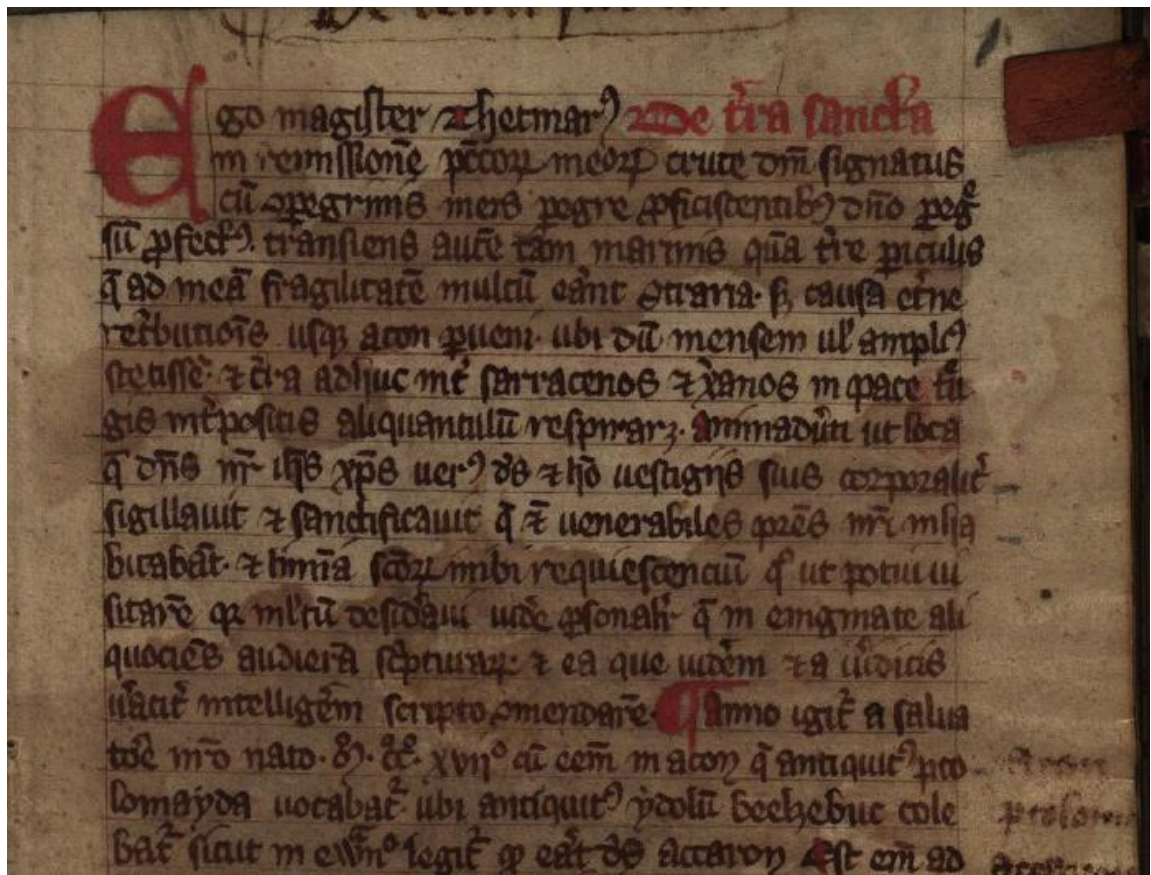 De terra sancta
Ego magister Thetmarꝰ
in remissionē pctoꝝ meoꝝ cruce dni signatus
cū ꝑegrinis meis ꝑegre ꝓficiscentibꝰ dño
sū ꝓfectꝰ. transiens autē tam marinis quā tre ꝑiculis
q̄ ad meā fragilitatē multū erant ꝯtraria. sꝫ causa etne
retbutiōis usqꝫ acon ꝑueni. ubi dū mensem ul amplꝰ
stetissē. ⁊ tra adhuc int sarracenos ⁊ xanos in pace treu
gis intpositis aliquantulū respiraꝫ. Animaduti ut loca
q̄ dn̄s nr̄ ihs xp̄s uerꝰ ds ⁊ hō uestigiis suis corporalit
sigillauit ⁊ sanctificauit q̄ ⁊ uenerabiles pres nri inha
bitabāt. ⁊ limīa scōꝝ inibi requiescenciū ut potui ui
sitarē qꝛ mltū desidaui uidē ꝑsonalr q̄ in enigmate ali
quociēs audierā scpturaꝝ. ⁊ ea que uidēm ⁊ a uidicis
uacit intelligēm scripto ꝯmendarē. ¶ anno igit a salua
tore nro nato. xvii° cū eēm in acon q̄ antiquitꝰ pto
lomayda uocabat ubi antiquitꝰ ydolū beelzebuc cole
bat sicut in ewn° legit ꝙ erat ds accaron Est em ad
acon
ptolom